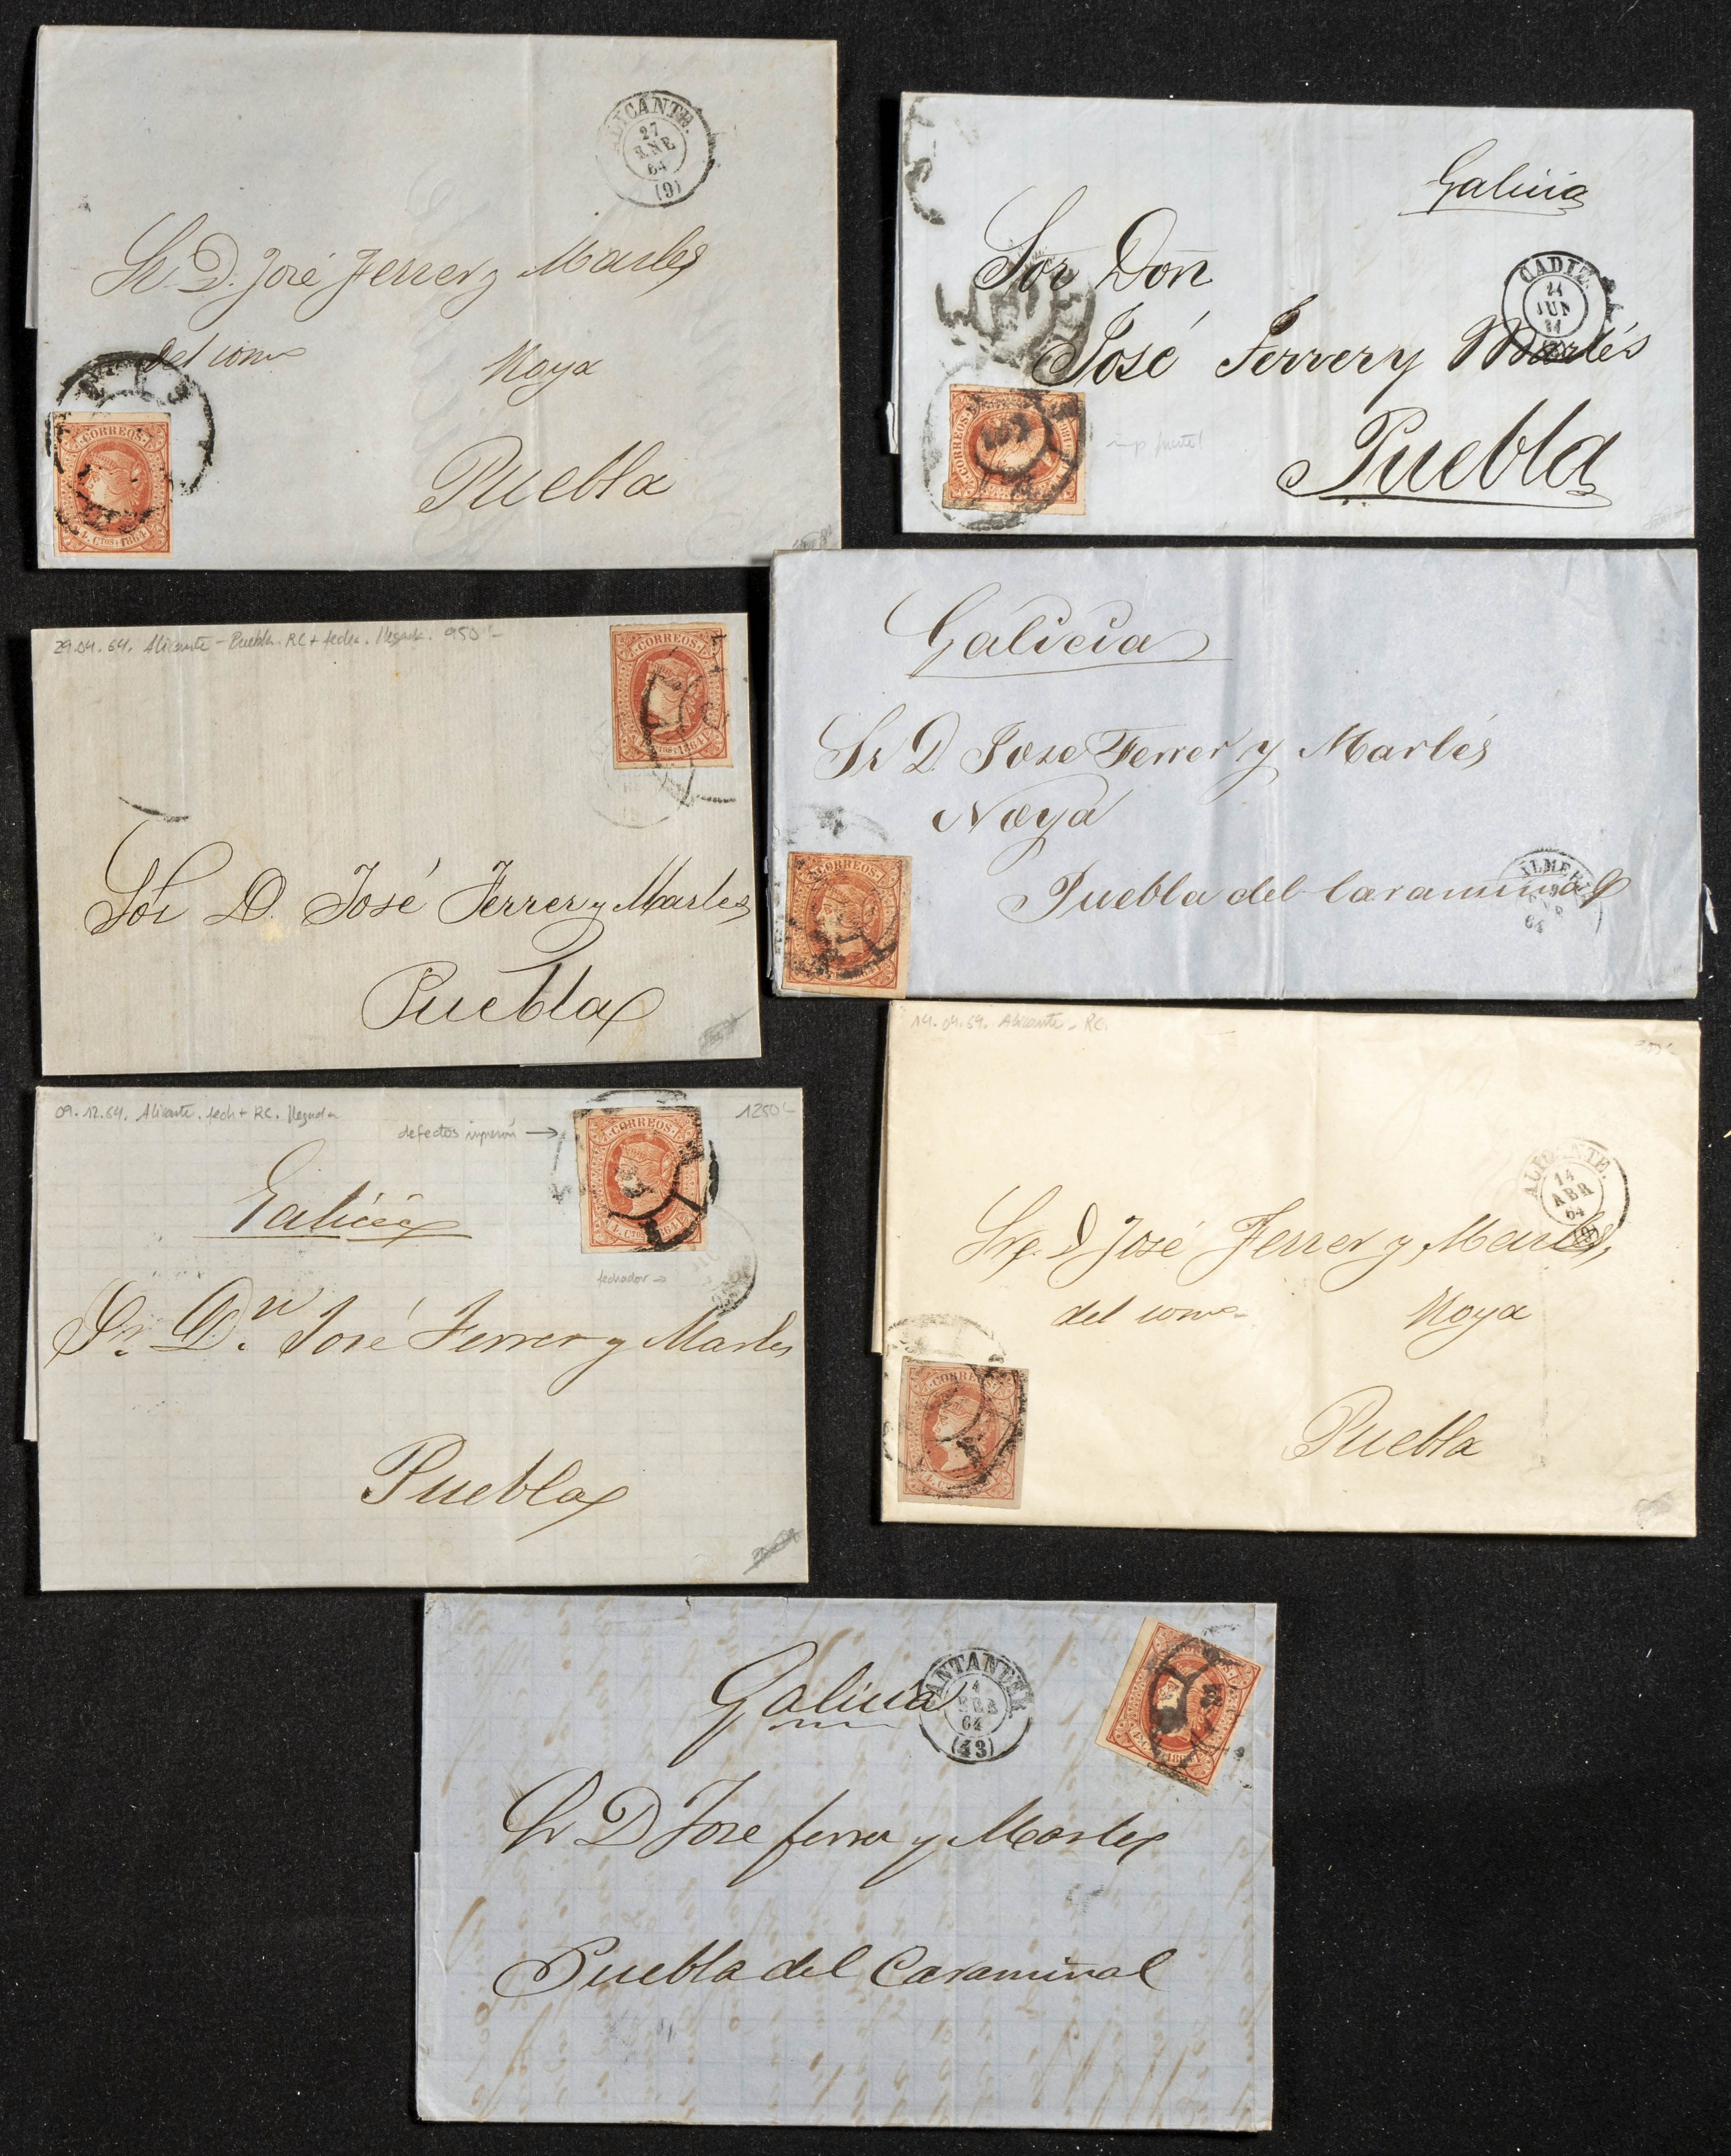 ALICANTE.
27
ENE
64
(9)
Sr. D. José Ferrer y Marles
del comº
Noya
Puebla
CORREOS
4 CTOS 1864
Galicia
CADIZ
24
JUN
64
Sor Don
José Ferrer y Martés
Puebla
CORREOS
29.04.64. Alicante - Puebla. RC + fecha. llegada. 950'-
CORREOS
CTOS 1864
Sor D. José Ferrer y Marles
Puebla
Galicia
Sr D. Jose Ferrer y Marlés
Noya
Puebla del Caramiñal
ALMERIA
64
CORREOS
09.12.64. Alicante. fech + RC. llegada
1250'-
defectos impresión →
CORREOS
4 CTOS 1864
fechador →
Galicia
Sr. Dn. José Ferrer y Marles
Puebla
14.04.64. Alicante - RC.
ALICANTE.
14
ABR
64
(9)
Sr. D José Ferrer y Marles,
del comº
Noya
Puebla
CORREOS
Galicia
SANTANDER
4
64
(43)
Sr D Jose ferrer y Marles
Puebla del Caramiñal